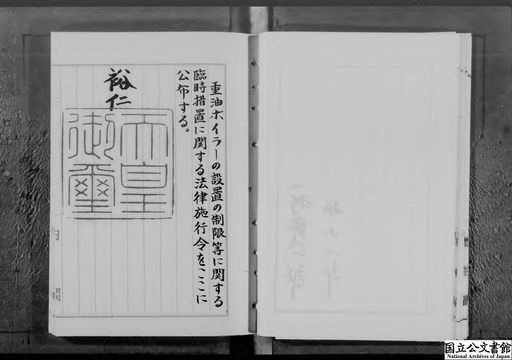 重油ボイラーの設置の制限等に関する
臨時措置に関する法律施行令をここに
公布する。
裕仁
天皇
御璽
国立公文書館
National Archives of Japan